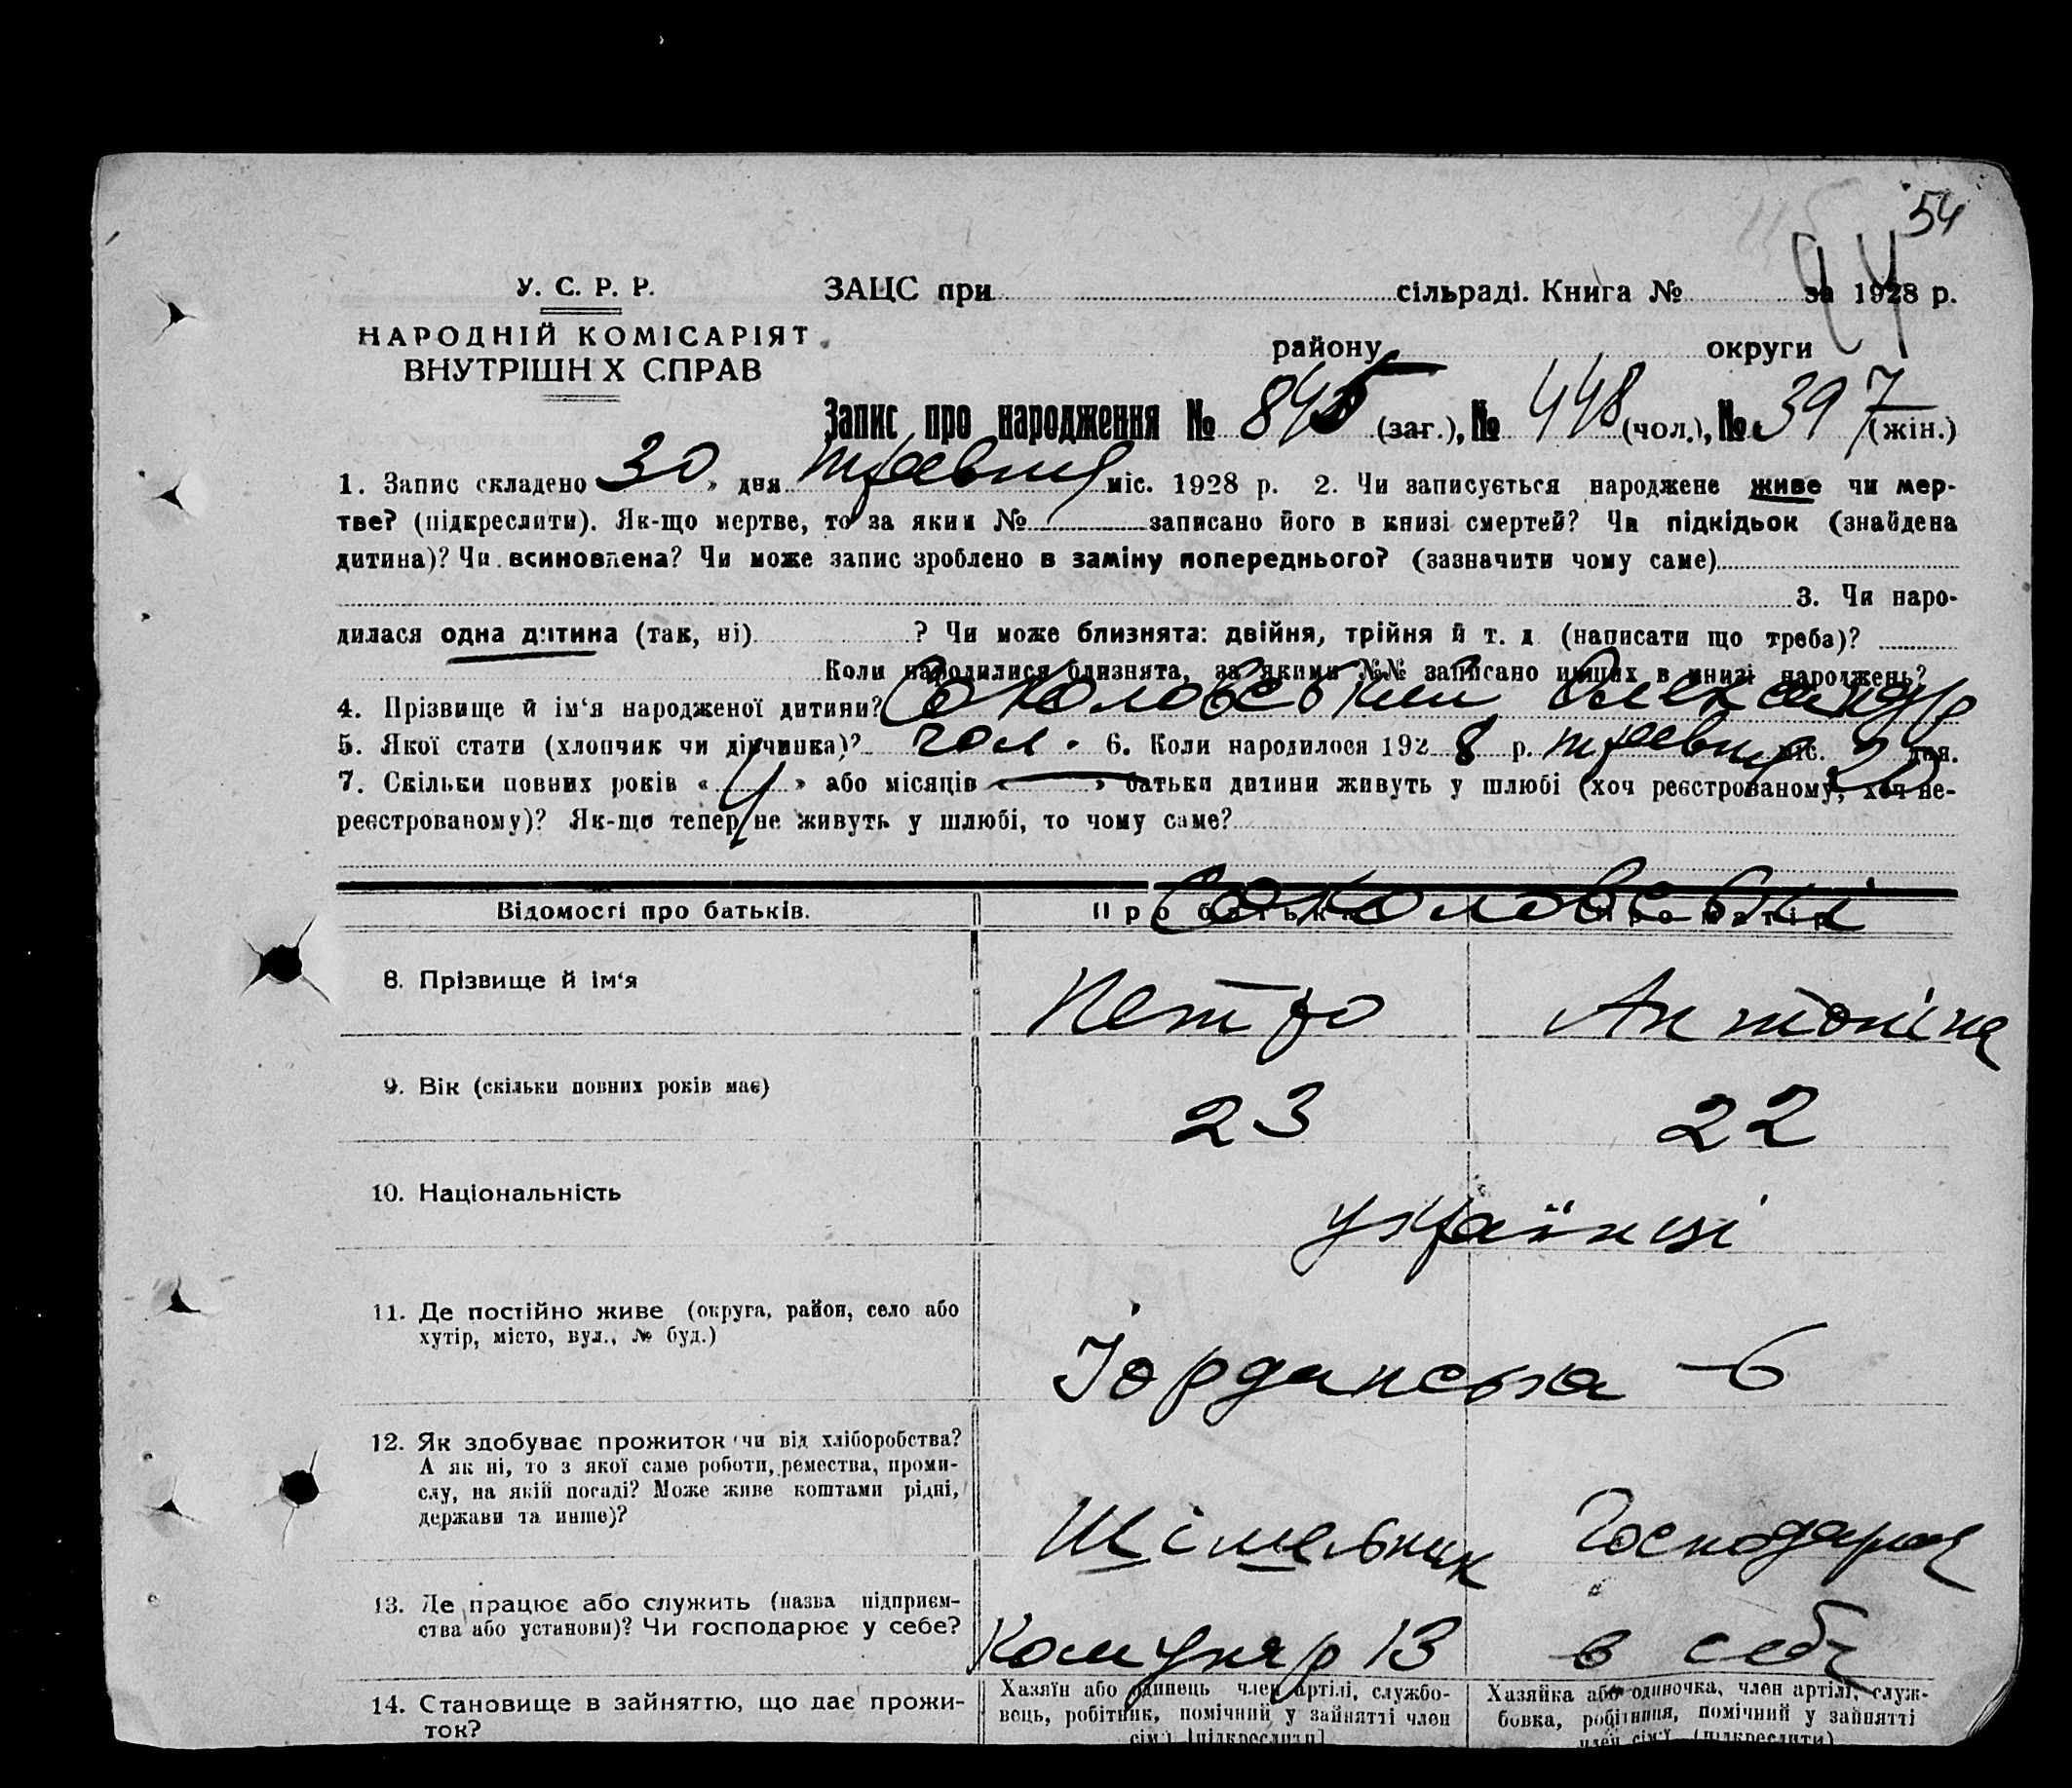 54
24
У. С. Р. Р.
НАРОДНІЙ КОМІСАРІЯТ
ВНУТРІШН Х СПРАВ
ЗАЦС при сільраді. Книга № за 1928 р.
району округи
Запис про народження № 845 (заг.), № 448 (чол.), № 397 (жін.)
1. Запис складено 30 » дня травня міс. 1928 р. 2. Чи записується народжене живе чи мер-
тве? (підкреслити). Як-що мертве, то за яким № записано його в книзі смертей? Чи підкідьок (знайдена
дитина)? Чи всиновлена? Чи може запис зроблено в заміну попереднього? (зазначити чому саме)
3. Чи наро-
дилася одна дитина (так, ні) ? Чи може близнята: двійня, трійня й т. д. (написати що треба)?
Коли народилися близнята, за якими №№ записано инших в книзі народжень?
4. Прізвище й ім'я народженої дитини? Соколовський Олександр
5. Якої стати (хлопчик чи дівчинка)? чол. 6. Коли народилося 192 8 р. травня міс. 20 дня.
7. Скільки повних років « 4 » або місяців « — » батьки дитини живуть у шлюбі (хоч реєстрованому, хоч не-
реєстрованому)? Як-що тепер не живуть у шлюбі, то чому саме?
Відомості про батьків. Про батька Про матір
Соколовські
8. Прізвище й ім'я Петро Антоніна
9. Вік (скільки повних років має) 23 22
10. Національність українці
11. Де постійно живе (округа, район, село або
хутір, місто, вул., № буд.)
Іорданська – 6
12. Як здобуває прожиток чи від хліборобства?
А як ні, то з якої саме роботи, ремества, проми-
слу, на якій посаді? Може живе коштами рідні,
держави та инше)?
Господарка
13. Де працює або служить (назва підприєм-
ства або установи)? Чи господарює у себе?
Комунар 13 в себе
14. Становище в зайняттю, що дає прожи-
ток?
Хазяїн або одинець член артілі, службо-
вець, робітник, помічний у зайнятті член
сім'ї [підкреслити]
Хазяйка або одиночка, член артілі, служ-
бовка, робітниця, помічний у зайнятті
член сім'ї (підкреслити)